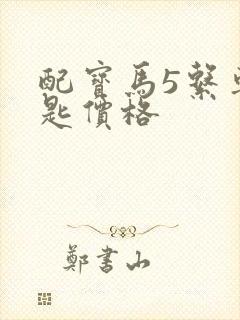 配寶馬5繫
匙價格
鄭書山